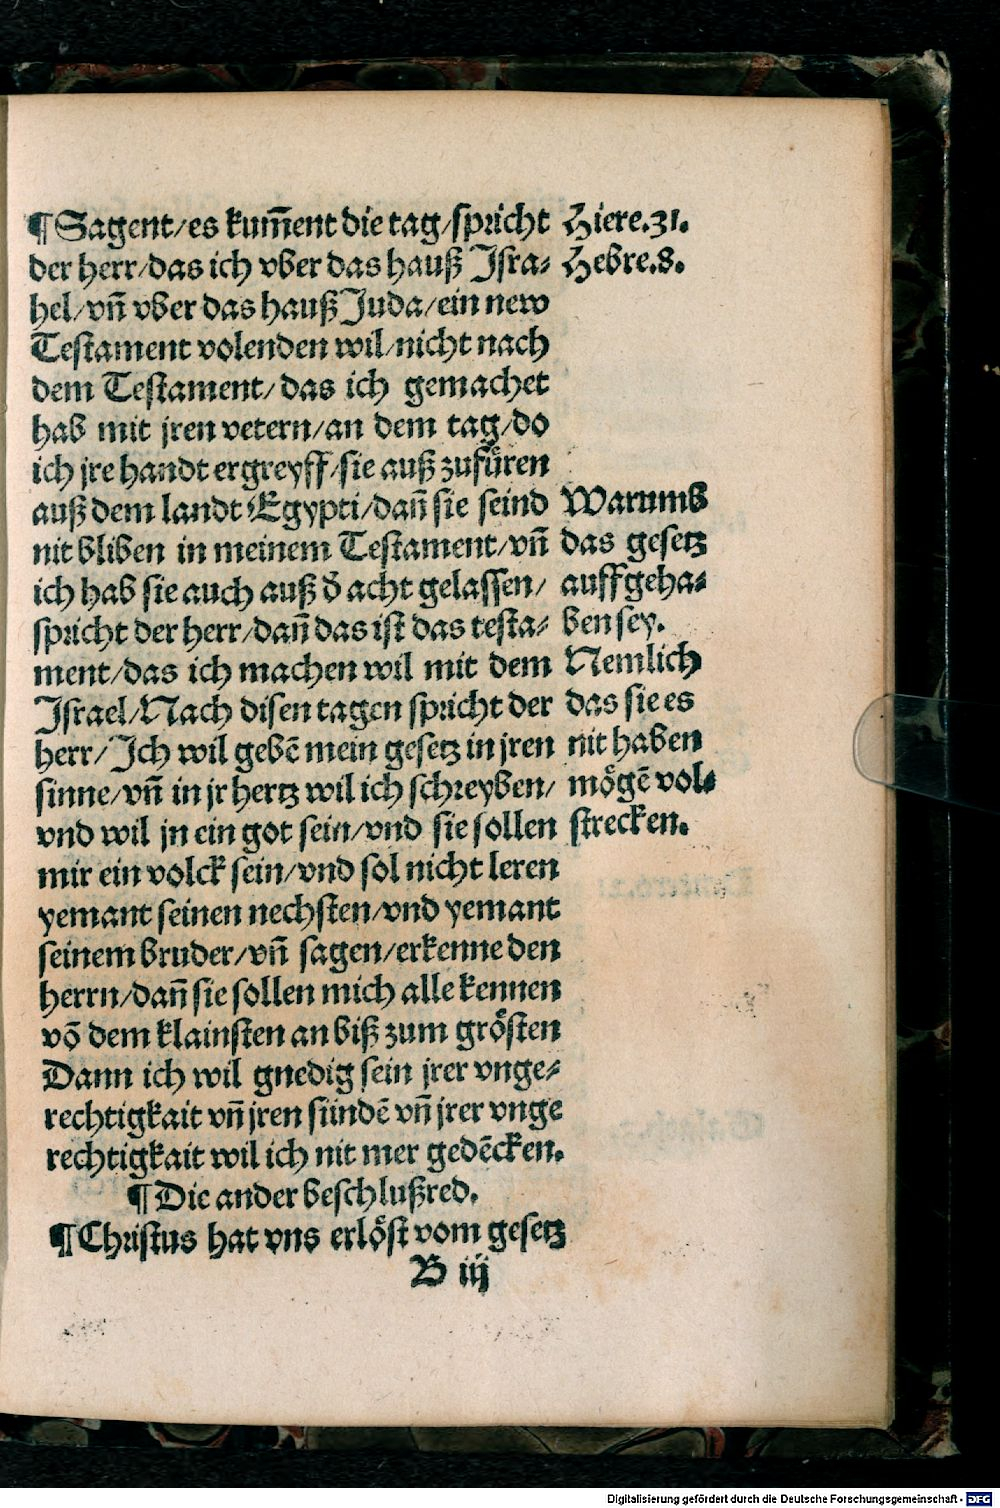 ¶Sagent/es kum̄ent die tag/spricht
der herr/das ich vber das hauß Isra⸗
hel/vn̄ vber das hauß Juda/ein new
Testament volenden wil/nicht nach
dem Testament/das ich gemachet
hab mit jren vetern/an dem tag/do
ich jre handt ergreyff/sie auß zufüren
auß dem landt Egypti/dan̄ sie seind
nit bliben in meinem Testament/vn̄
ich hab sie auch auß d̓ acht gelassen/
spricht der herr/dan̄ das ist das testa⸗
ment/das ich machen wil mit dem
Israel/Nach disen tagen spricht der
herr/Ich wil gebē mein gesetz in jren
sinne/vn̄ in jr hertz wil ich schreyben/
vnd wil jn ein got sein/vnd sie sollen
mir ein volck sein/vnd sol nicht leren
yemant seinen nechsten/vnd yemant
seinem bruder/vn̄ sagen/erkenne den
herrn/dan̄ sie sollen mich alle kennen
vō dem klainsten an biß zum grösten
Dann ich wil gnedig sein jrer vnge⸗
rechtigkait vn̄ jren sündē vn̄ jrer vnge
rechtigkait wil ich nit mer gedēcken.
¶Die ander beschlußred.
¶Christus hat vns erlöst vom gesetz
B iij
Hiere.31.
Hebre.8.
Warumb
das gesetz
auffgeha⸗
ben sey.
Nemlich
das sie es
nit haben
mögē vol⸗
strecken.
Digitalisierung gefördert durch die Deutsche Forschungsgemeinschaft - DFG